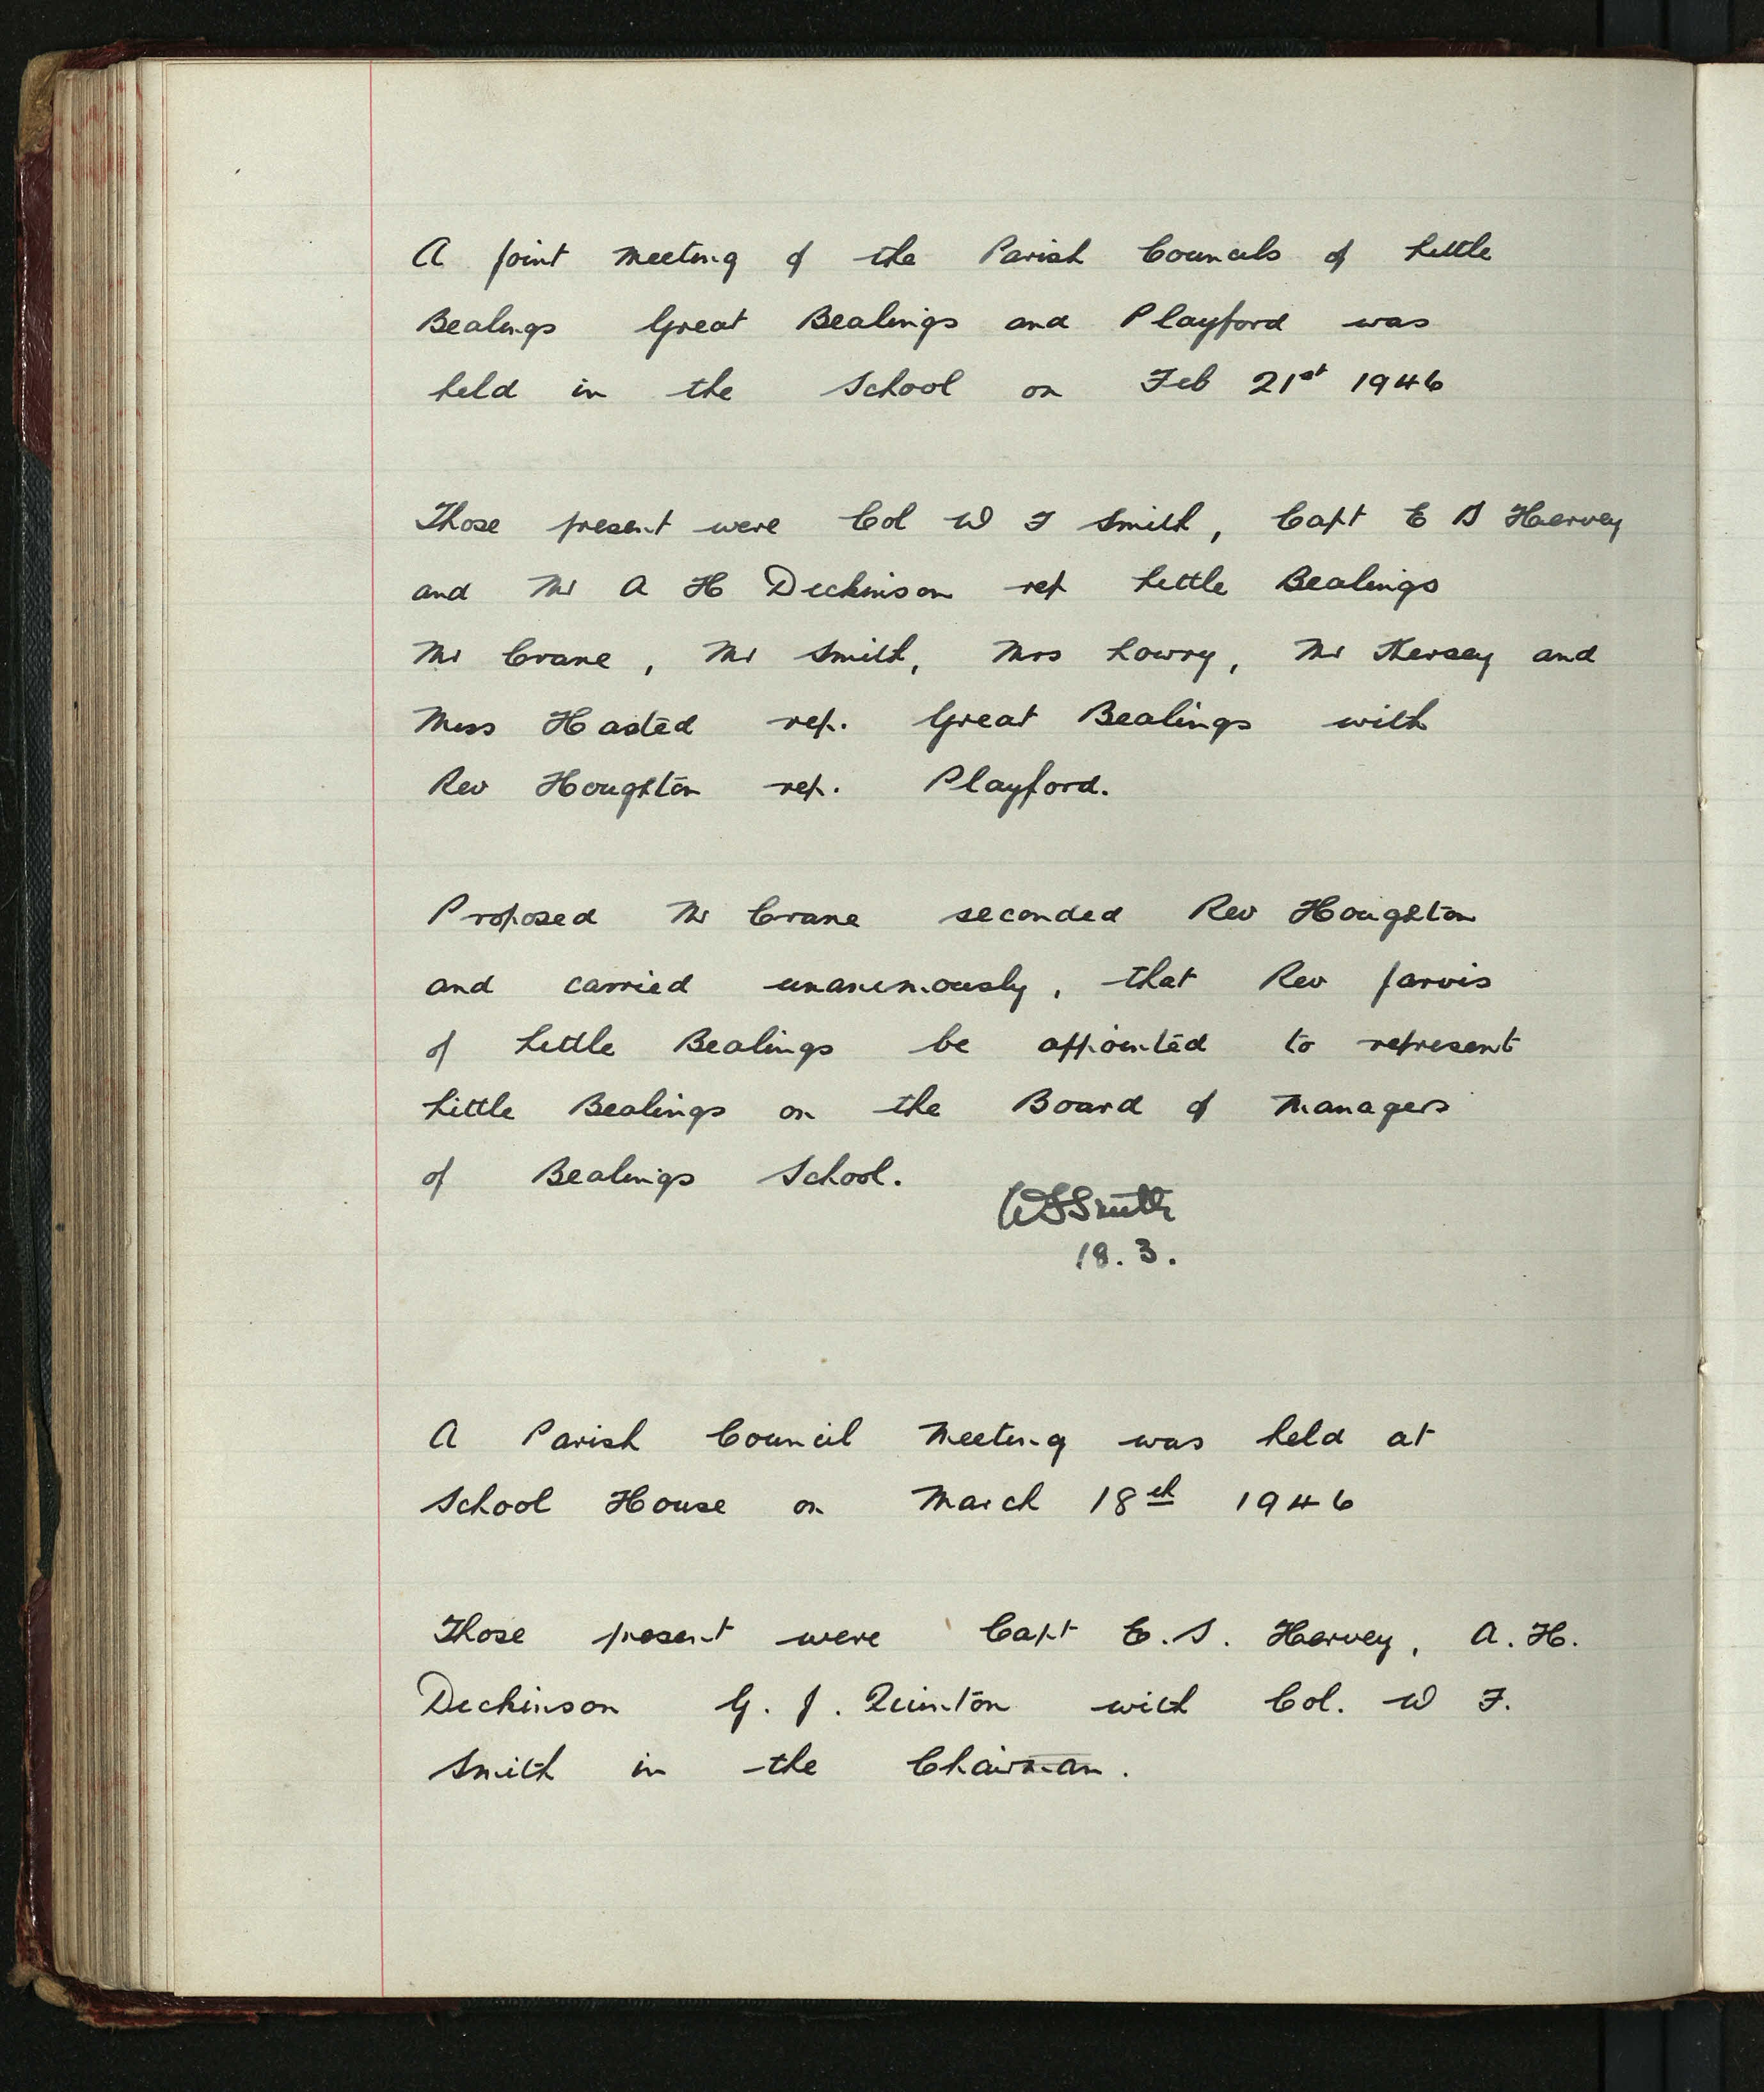 A joint meeting of the Parish Councils of Little
Bealings Great Bealings and Playford was
held in the School on Feb 21st 1946
Those present were Col W F Smith, Capt E S Harvey
and Mr A H Dickinson rep Little Bealings
Mr Crane, Mr Smith, Mrs Lowry, Mr and
Miss Hasted rep. Great Bealings with
Rev Houghton rep. Playford.
Proposed Mr Crane seconded Rev Houghton
and carried unanimously, that Rev Jarvis
of Little Bealings be appointed to represent
Little Bealings on the Board of Managers
of Bealings School.
WFSmith
18.3.
A Parish Council Meeting was held at
School House on March 18th 1946
Those present were Capt E.S. Harvey, A.H.
Dickinson G.J. Quinton with Col. W F.
Smith in the Chairman.